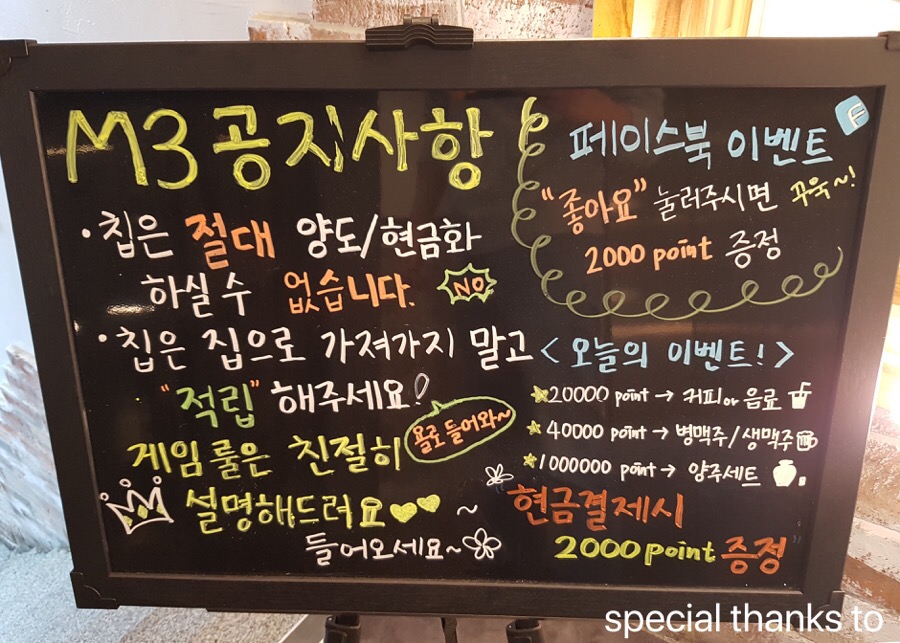 M3 공지사항
· 칩은 절대 양도/현금화
하실 수 없습니다. NO
· 칩은 집으로 가져가지 말고
"적립" 해주세요!
게임 룰은 친절히
욜로 들어와~
설명해드려요 ~
들어오세요~
페이스북 이벤트 F
"좋아요" 눌러주시면 꾸욱~!
2000 point 증정
<오늘의 이벤트!>
20000 point → 커피 or 음료
40000 point → 병맥주/생맥주
1000000 point → 양주세트
"현금결제시
2000 point 증정"
special thanks to